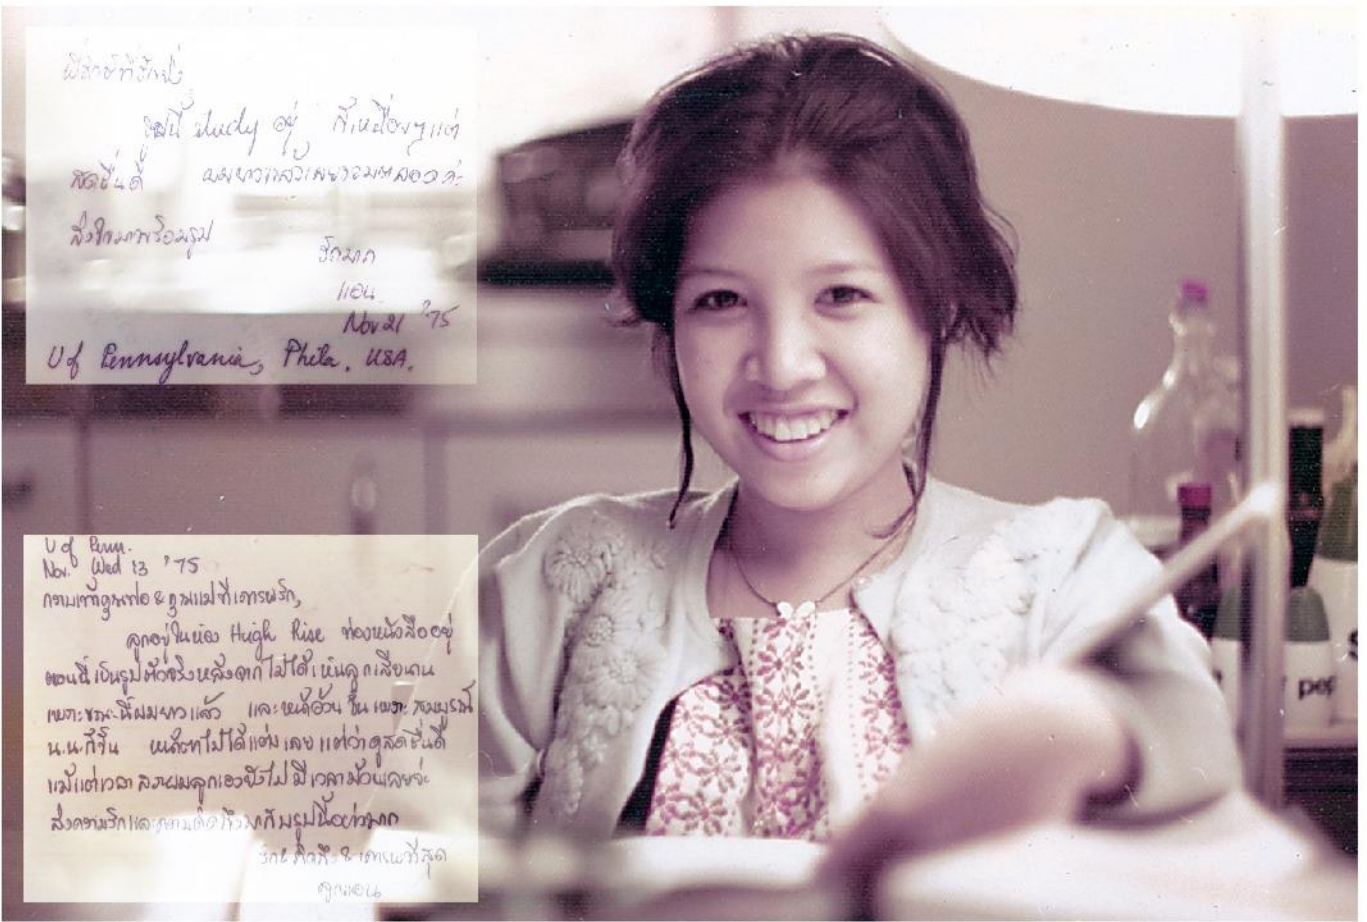 ตอนนี้ study อยู่ ก็เหนื่อยๆ แต่
สดชื่นดี ผมยาวแล้วเลย
ส่งใจมาพร้อมรูป
รักมาก
แอน
Nov 21 '75
U of Pennsylvania, Phila. USA.
U of Penn.
Nov. Wed 13 '75
กราบเท้าคุณพ่อ & คุณแม่ที่เคารพรัก,
ลูกอยู่ในห้อง High Rise ท่องหนังสืออยู่
ตอนนี้เป็นรูปตัวจริงหลังจากไม่ได้เห็นลูกเสียนาน
เพราะขณะนี้ผมยาวแล้ว และหน้าอ้วนขึ้น เพราะสมบูรณ์
น.น. ก็ขึ้น หน้าตาไม่ได้แต่งเลย แต่ว่าดูสดชื่นดี
แม้แต่เวลาสระผมลูกเองยังไม่มีเวลาม้วนเลยจ้ะ
ส่งความรักและความคิดถึงมากับรูปนี้อย่างมาก
รัก & คิดถึง & เคารพที่สุด
ลูกแอน
per